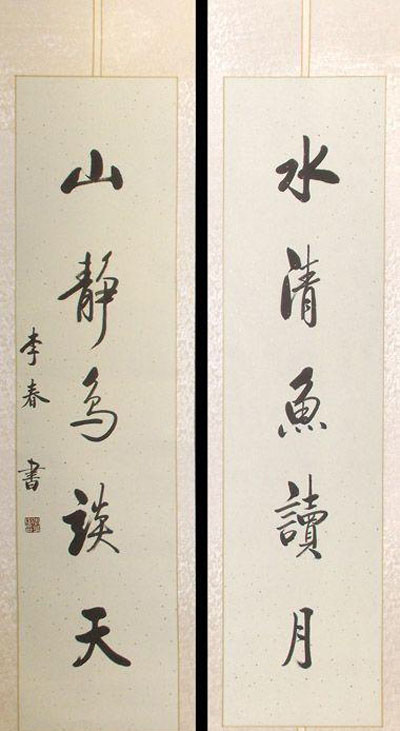 水清魚讀月
山静鸟談天
李春書